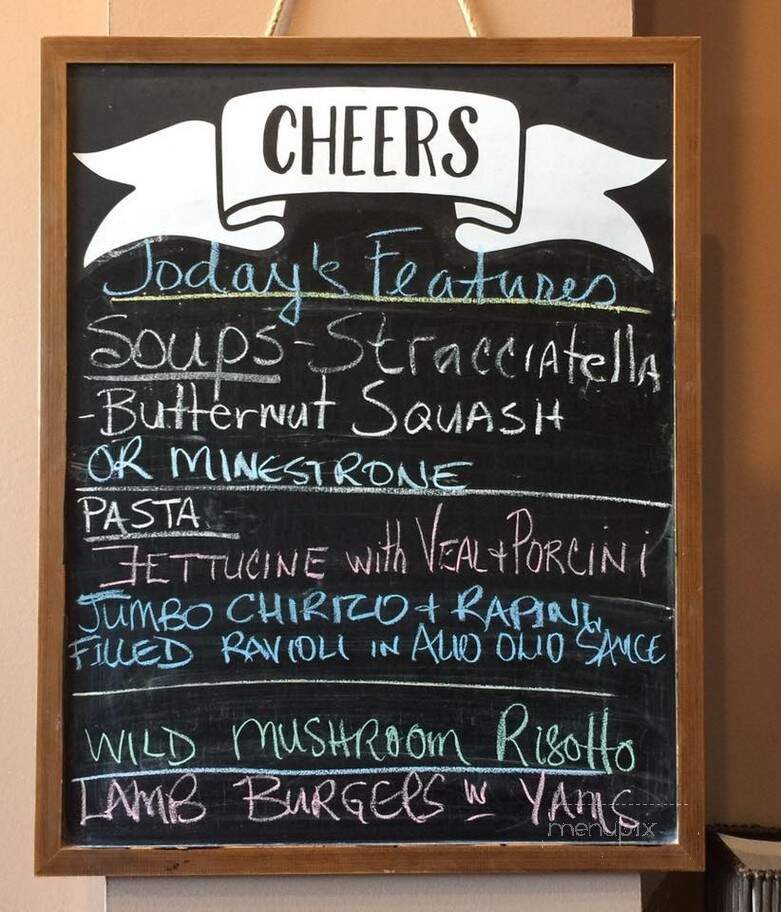 CHEERS
Today's Features
Soups - Stracciatella
- Butternut Squash
OR MINESTRONE
PASTA -
FETTUCINE with VEAL + PORCINI
JUMBO CHIRIZO + RAPINI
FILLED RAVIOLI IN ALIO OLIO SAUCE
WILD MUSHROOM Risotto
LAMB BURGERS W YAMS
menupix